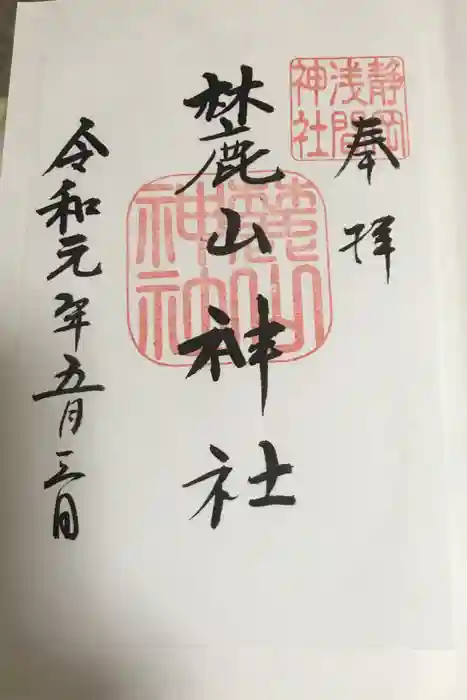 奉拝
静岡
浅間
神社
麓山神社
令和元年五月三日